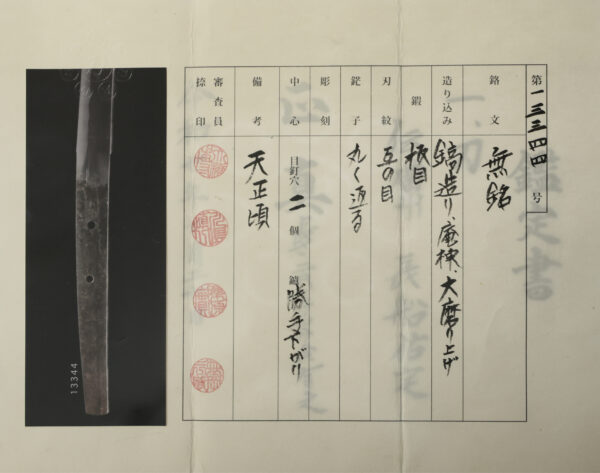 第一三三四四号
銘文 無銘
造り込み 鎬造り、庵棟、大磨り上げ
鍛 板目
刃紋 五の目
鋩子 丸く返る
彫刻
中心 目釘穴 二個 鑢 勝手下がり
備考 天正頃
審査員
捺印
13344